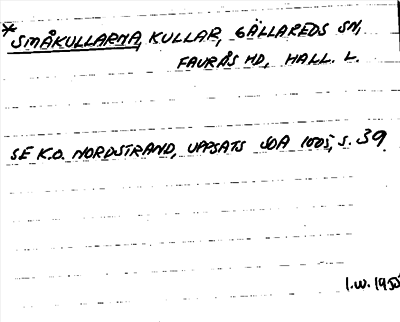 *SMÅKULLARNA, KULLAR, GÄLLAREDS SN,
FAURÅS HD, HALL. L.
SE K.O. NORDSTRAND, UPPSATS SOA 1005, S. 39
I.W. 1950